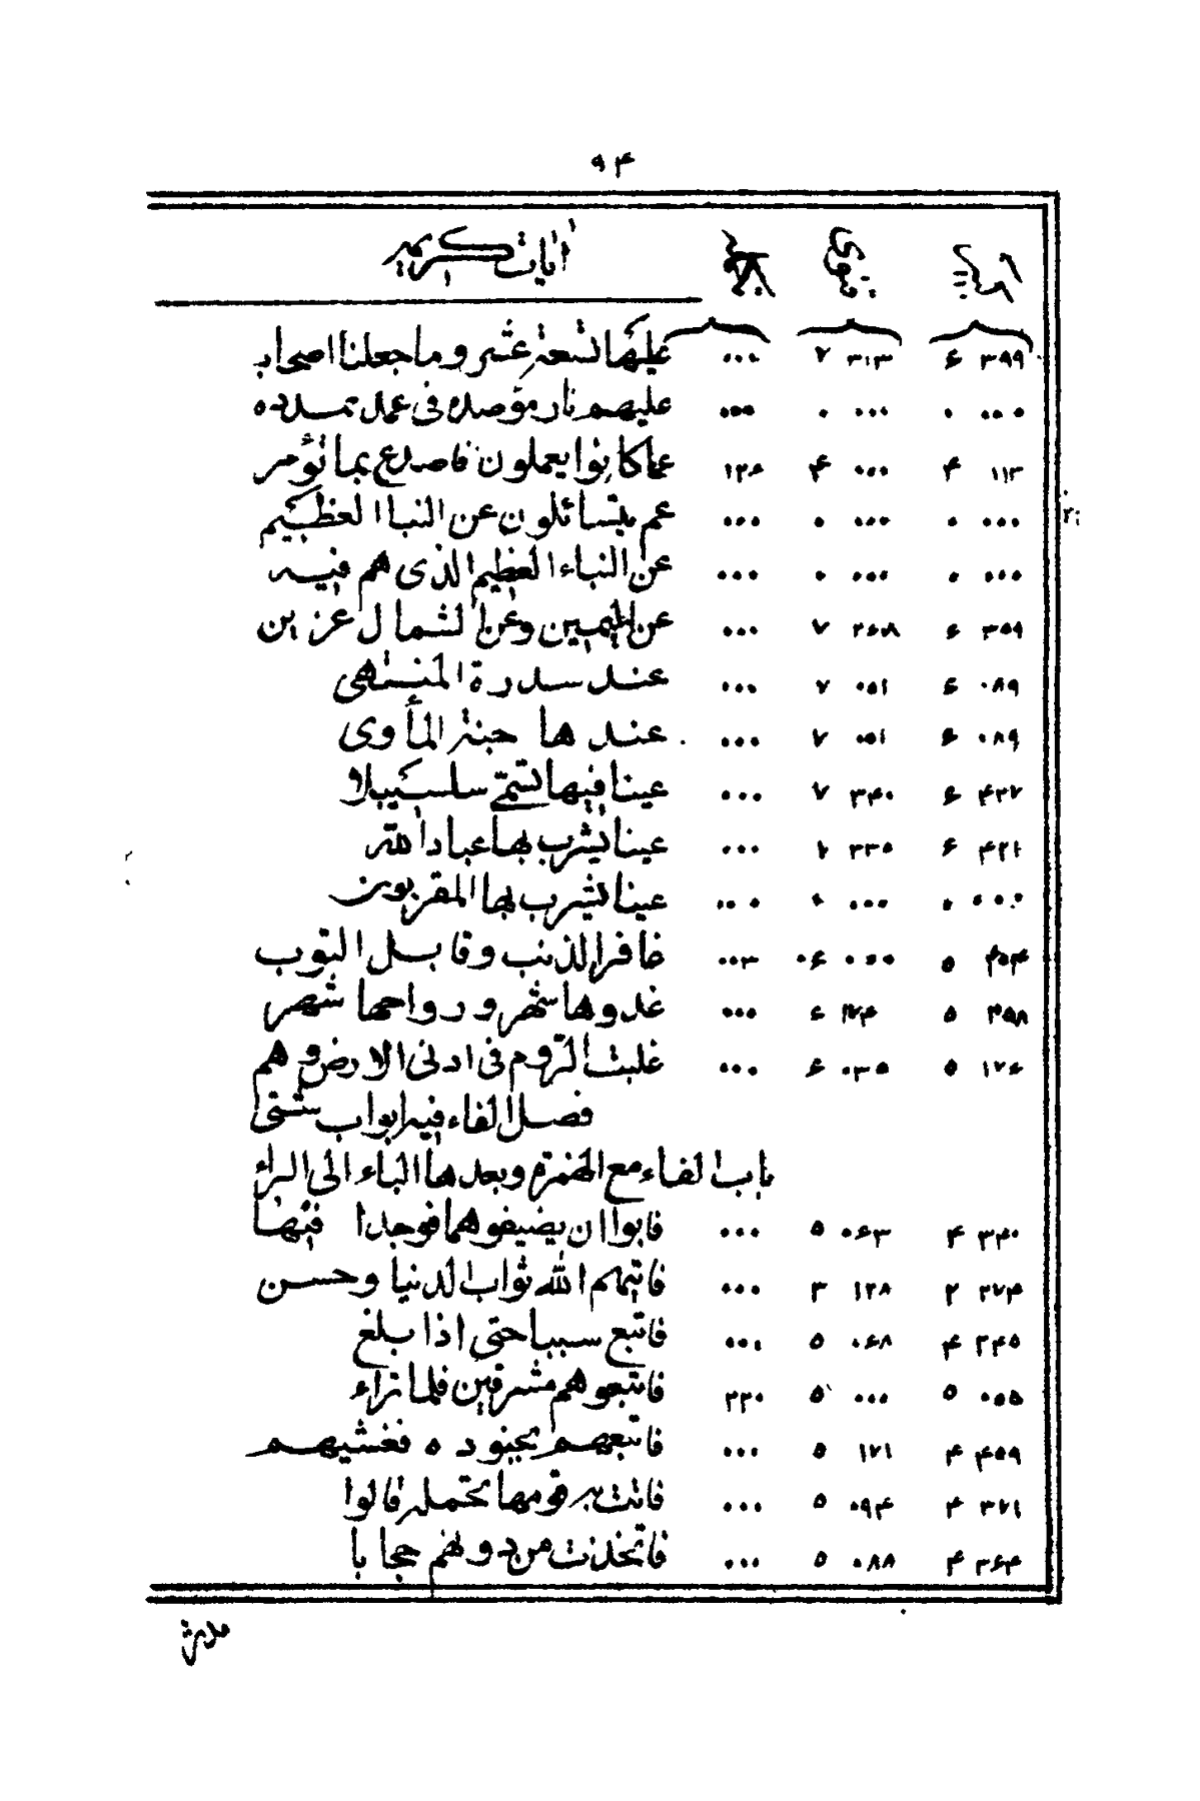 ۹۴
آیات کریمه
۳۹۹ ۶ ۳۱۳ ۷ ۰۰۰ علیها تسعة عشر وما جعلنا اصحاب
۰۰۰ ۰ ۰۰۰ ۰ ۰۰۰ علیهم نار مؤصده فی عمد ممدده
۱۱۳ ۴ ۰۰۰ ۴ ۱۲۸ عما کانوا یعملون فاصدع بما تؤمر
۰۰۰ ۰ ۰۰۰ ۰ ۰۰۰ عم یتسائلون عن النبا العظیم
۰۰۰ ۰ ۰۰۰ ۰ ۰۰۰ عن النباء العظیم الذی هم فیه
۳۵۹ ۶ ۲۶۸ ۷ ۰۰۰ عن الیمین وعن الشمال عزین
۰۸۹ ۶ ۰۵۱ ۷ ۰۰۰ عند سدرة المنتهی
۰۸۹ ۶ ۰۵۱ ۷ ۰۰۰ عندها جنة المأوی
۴۲۷ ۶ ۳۴۰ ۷ ۰۰۰ عینا فیها تسمّی سلسبیلا
۴۲۱ ۶ ۳۳۵ ۷ ۰۰۰ عینا یشرب بها عباد الله
۰۰۰ ۰ ۰۰۰ ۰ ۰۰۰ عینا یشرب بها المقربون
۴۵۴ ۵ ۰۰۰ ۶۰ ۰۰۳ غافر الذنب وقابل التوب
۳۵۸ ۵ ۲۷۴ ۶ ۰۰۰ غدوها شهر ورواحها شهر
۱۷۶ ۵ ۰۳۵ ۶ ۰۰۰ غلبت الرّوم فی ادنی الارض وهم
فصل الفاء فیه ابواب شتی
باب الفاء مع الهمزة وبعدها الباء الی الراء
۳۴۰ ۴ ۰۶۳ ۵ ۰۰۰ فابوا ان یضیفوهما فوجدا فیها
۲۷۴ ۲ ۱۲۸ ۳ ۰۰۰ فاتیهم الله ثواب الدنیا وحسن
۳۴۵ ۴ ۰۶۸ ۵ ۰۰۰ فاتبع سببا حتی اذا بلغ
۰۵۵ ۵ ۰۰۰ ۵ ۲۲۰ فاتبعوهم مشرقین فلما تراء
۴۵۹ ۴ ۱۷۱ ۵ ۰۰۰ فاتبعهم بجنوده فغشیهم
۳۷۱ ۴ ۰۹۴ ۵ ۰۰۰ فاتت به قومها تحمله قالوا
۳۶۴ ۴ ۰۸۸ ۵ ۰۰۰ فاتخذت من دونهم حجابا